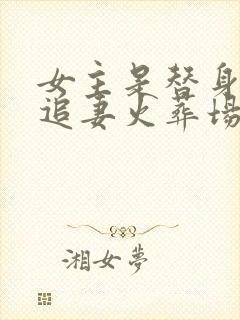 女主是替身
追妻火葬場
湘女夢